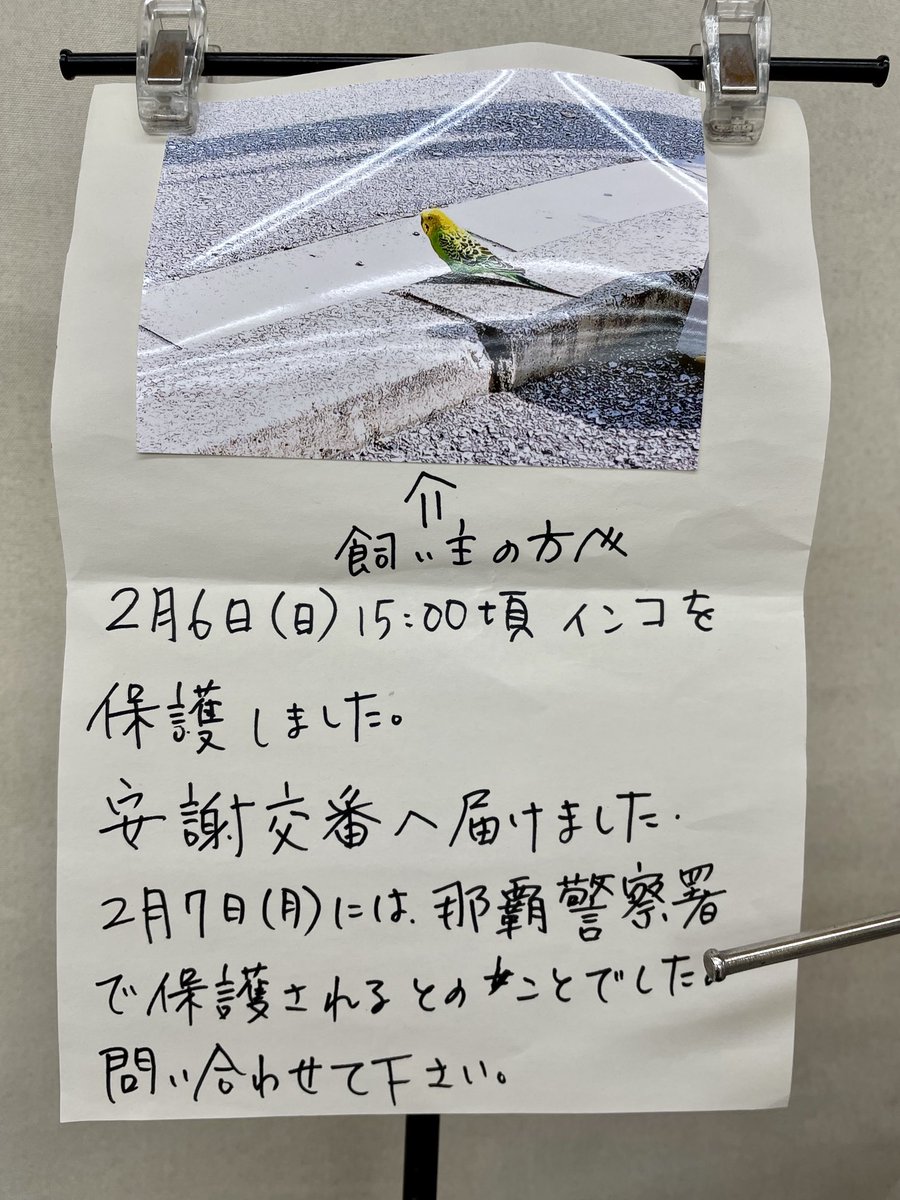 飼い主の方へ
2月6日(日)15:00頃 インコを
保護しました。
安謝交番へ届けました.
2月7日(月)には、那覇警察署
で保護されるとのことでした。
問い合わせて下さい。